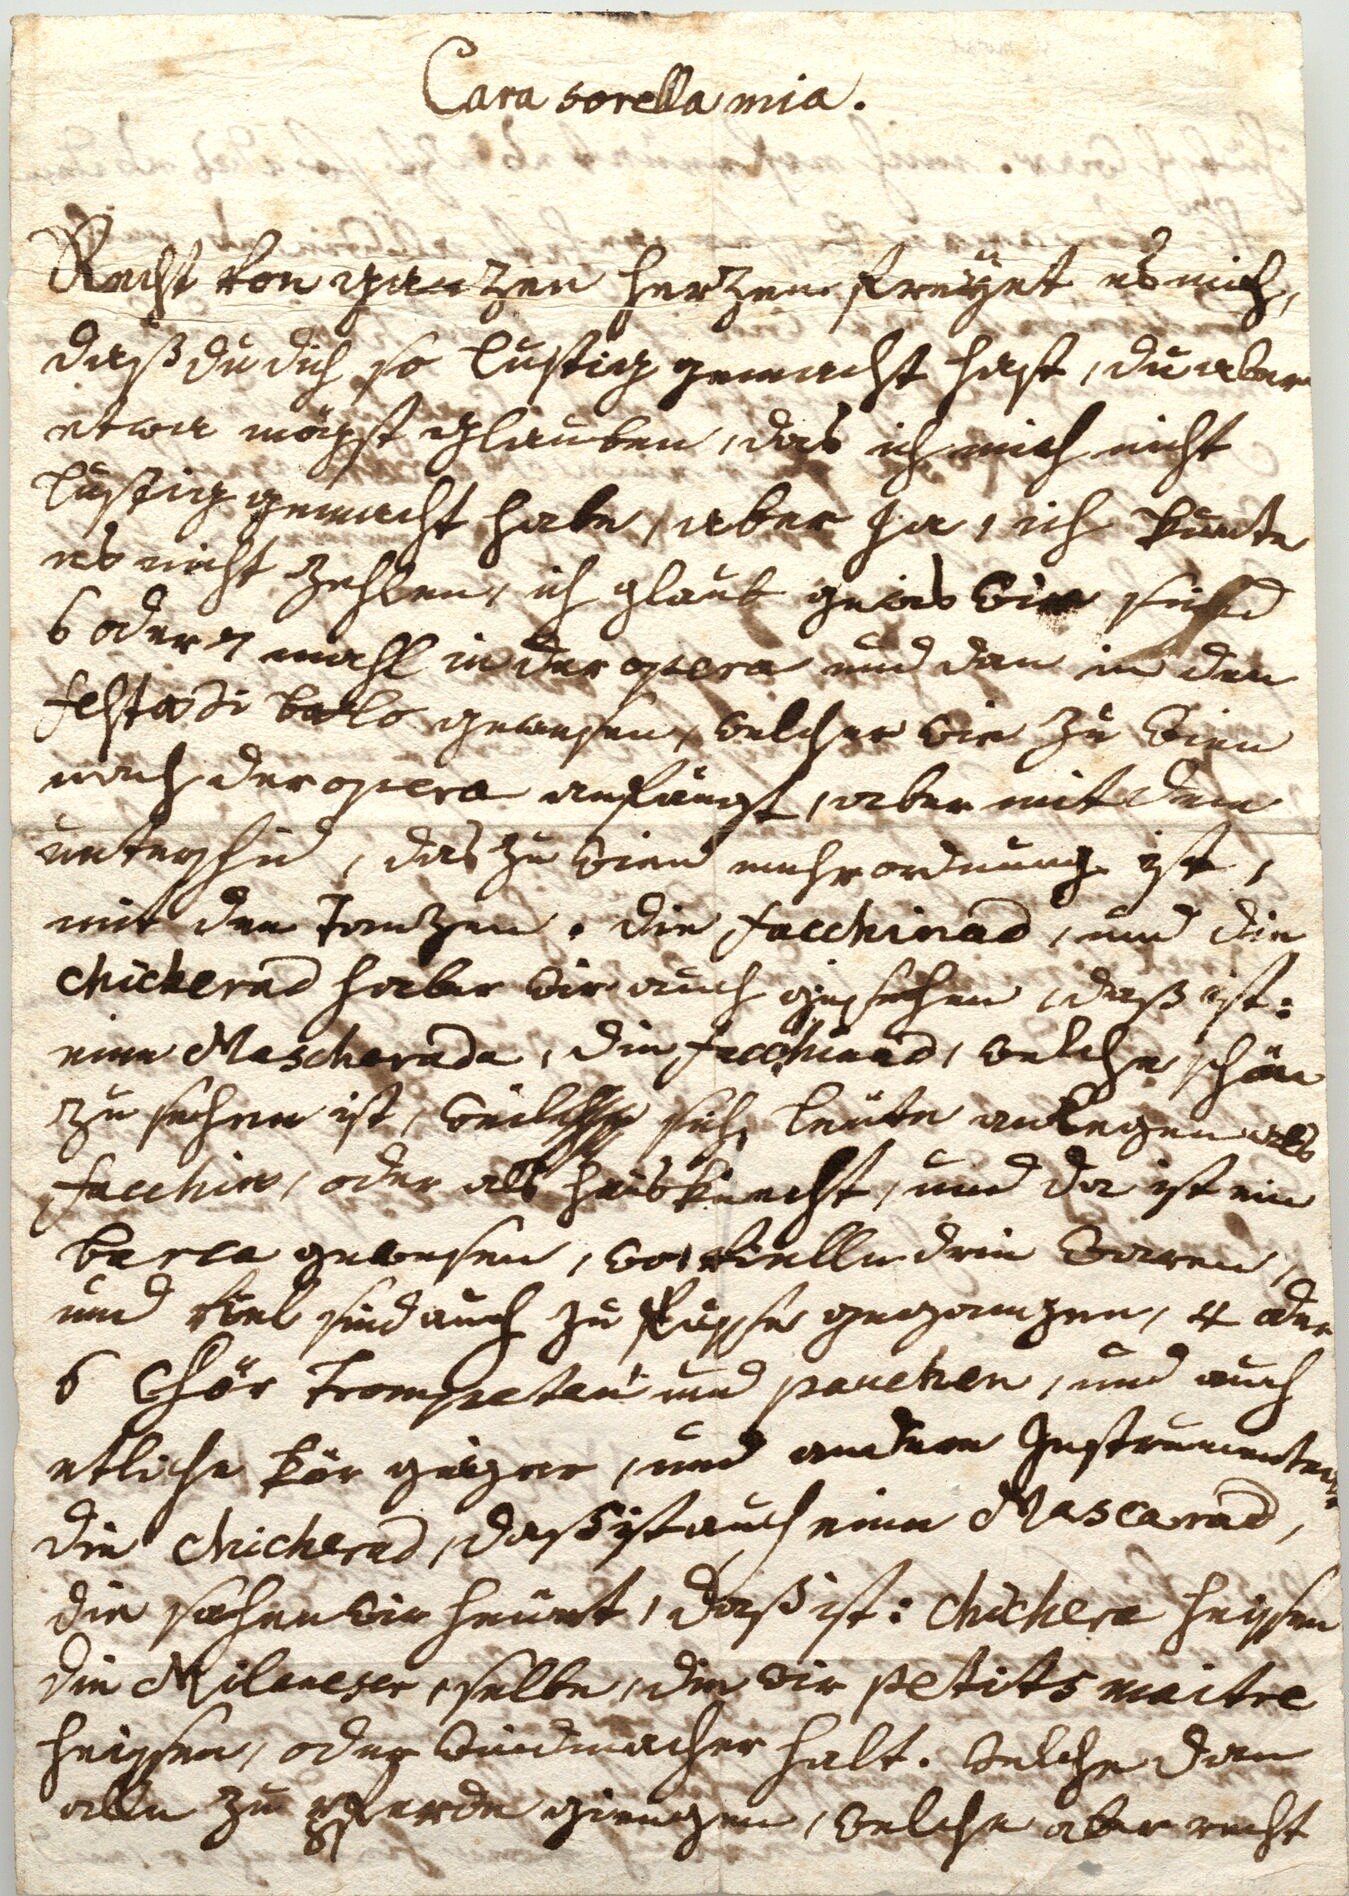 Cara sorella mia.
Recht von ganzen herzen freüet es mich,
daß du dich so lustig gemacht hast, du aber
etwa mögst glauben, das ich mich nicht
lustig gemacht habe, aber ja, ich kunte
es nicht zehlen, ich glaub gewis wir sind
6 oder 7 mahl in der opera und dan in den
festa di ballo gewesen, welcher wie zu wien
nach der opera anfängt, aber mit dem
unterschid, das zu wien mehr ordnung ist,
mit den tantzen. die facchinad, und die
chicherad haben wir auch gesehen, daß ist:
eine Mascherada, die facchinad, welche schön
zu sehen ist, weil sich leüte anlegen als
facchin, oder als hausknecht, und da ist ein
barca gewesen, wo vielle drin waren,
und viel sind auch zu fusse gegangen, 4 oder
6 Chör trompeten und paucken, und auch
etliche kör geiger, und andere Instrumenten.
die chicherad, daß ist auch eine Mascarad,
die sahen wir heunt, daß ist: chichera heissen
die Milaneser, selbe, die wir petits maitre
heissen, oder windmacher halt. welche dan
alle zu pferde giengen, welche aber recht